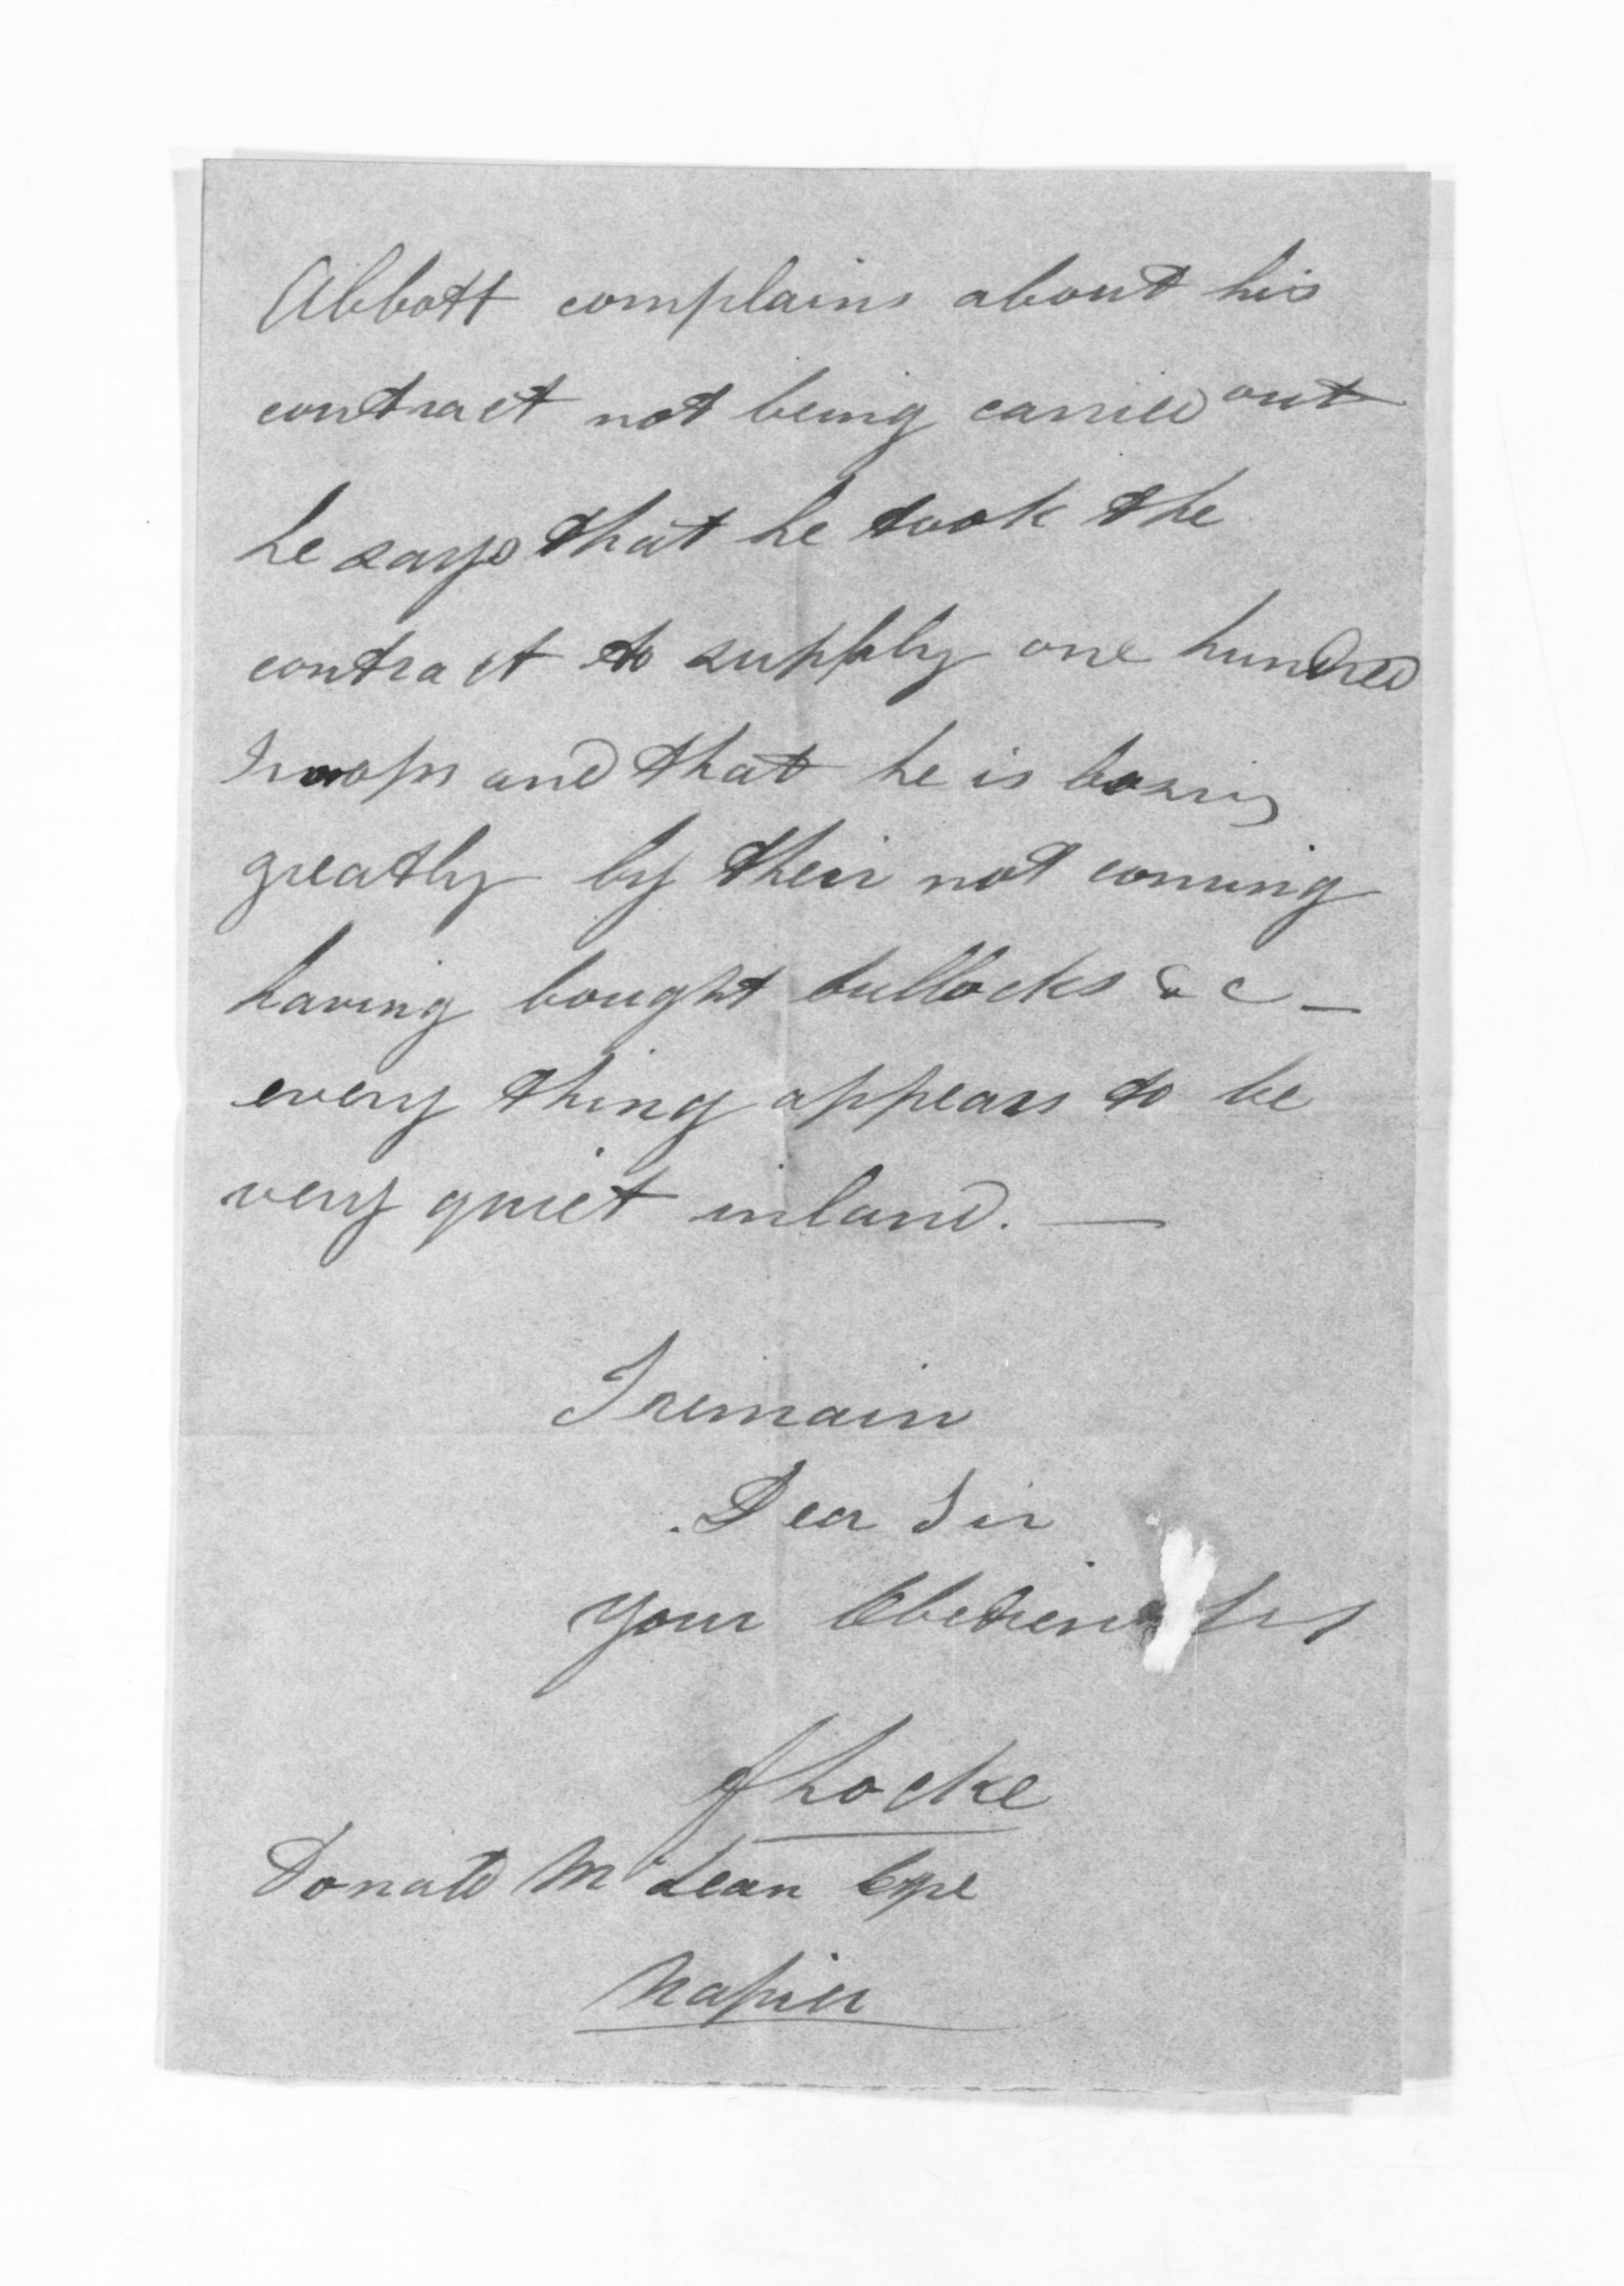 Abbott complains about his
contract not being carried out
he says that he took the
contract to supply one hundred
Troops and that he is loosing
greatly by their not coming
having bought bullocks &c –
every thing appears to be
very quiet inland. —
I remain
Dear Sir
your Obedient Svt
J Locke
Donald McLean Esqe
Napier